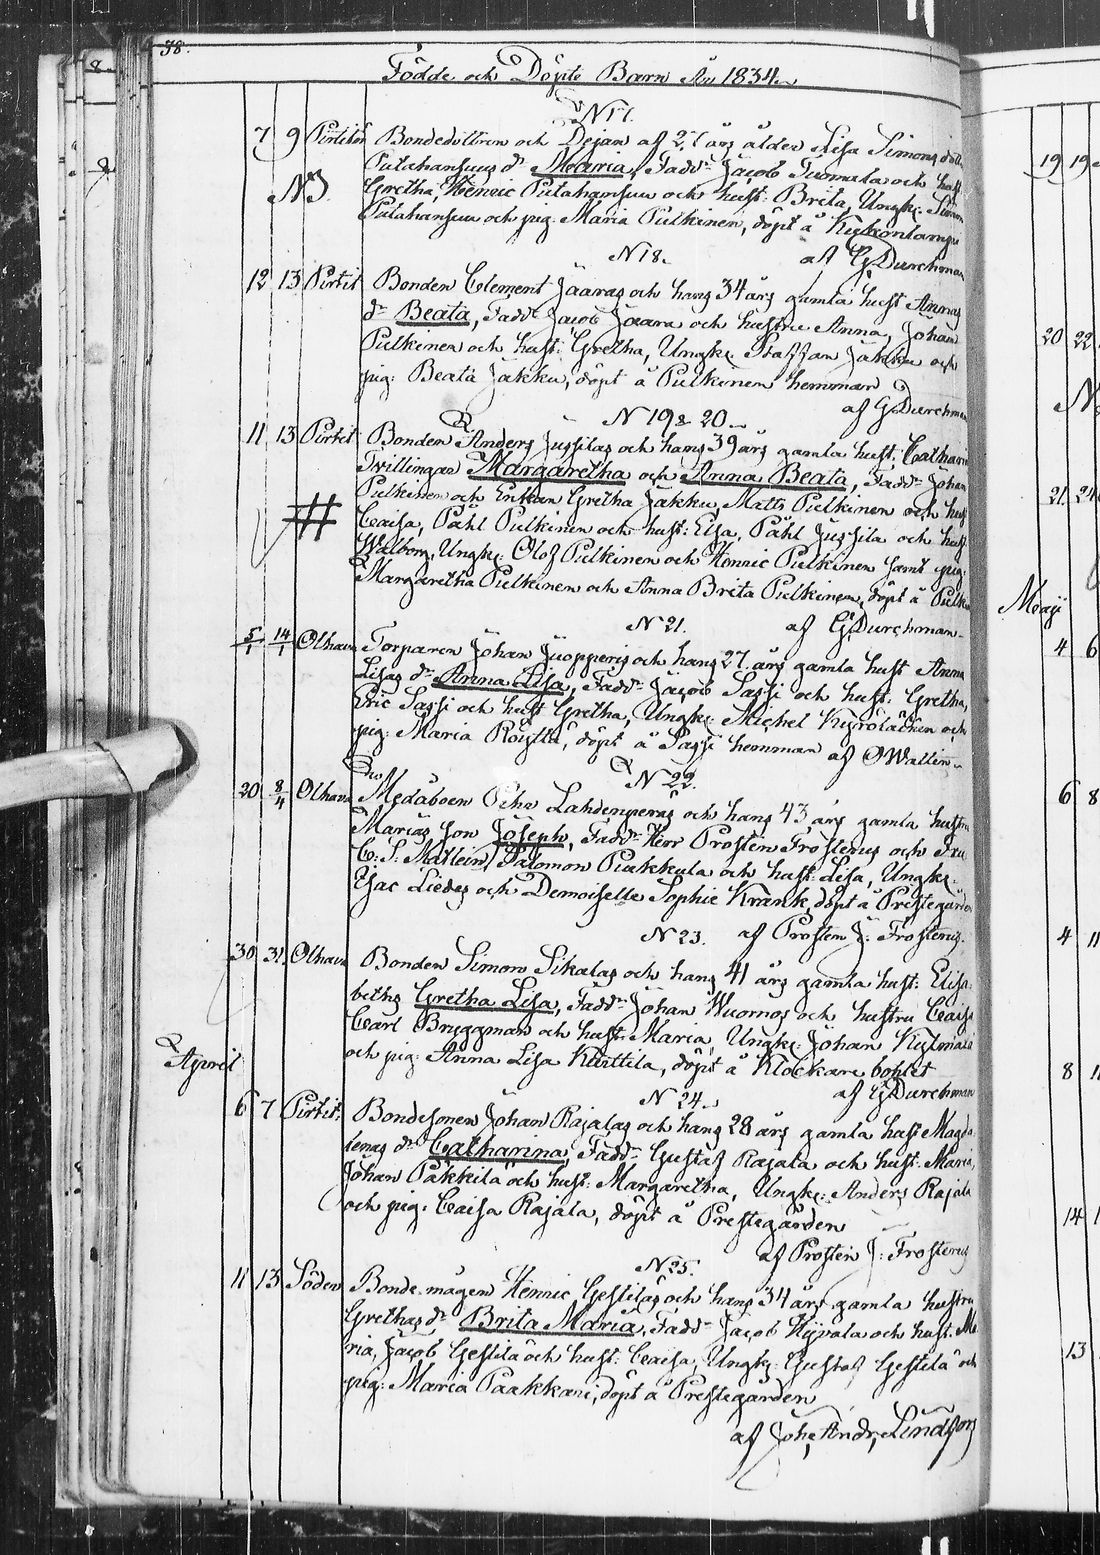 38.
Födde och Döpte Barn År 1834.
N 17.
7 9 Bondedottren och Pejan af 27 års ålder Lisa Simons
Putahansuus dr Maria, Fadd: Jacob Tuomala och hust
NB Gretha, Henric Putahansuu och hust: Brita, Ungk: Simon
Putahansuu och pig: Maria Pulkinen, döpt å
N 18. af G Durchman
12 13 Pirtit Bonden Clement Jaaras och hans 34 års gamla hust Annas
dr Beata, Fadd: Jacob Jaara och hustru Anna, Johan
Pulkinen och hust: Gretha, Ungk: Staffan Jakku och
pig: Beata Jakku, döpt å Pulkinen hemman
af G Durchman
N 19 & 20.
11 13 Pirtit Bonden Anders Jussilas och hans 39 års gamla hust: Cathari
Tvillingar Margaretha och Anna Beata, Fadd: Johan
Pulkinen och Enkan Gretha Jakku, Matts Pulkinen och hust
# Caisa, Påhl Pulkinen och hust: Elsa, Påhl Jussila och hust
Walborg, Ungk: Olof Pulkinen och Henric Pulkinen samt pig:
Margaretha Pulkinen och Anna Brita Pulkinen, döpt å Pulki
N 21. af G Durchman.
5/1 14/1 Olhava Torparen Johan Juopperis och hans 27 års gamla hust Anna
Lisas dr Anna Lisa, Fadd: Jacob Sassi och hust: Gretha,
Eric Sassi och hust Gretha, Ungk: Michel och
pig: Maria Röyttä, döpt å Sassi hemman af O Wallin.
N 22.
20 8/4 Olhava Medåboen Pehr Lahdenperäs och hans 43 års gamla hustru
Marias son Joseph, Fadd: Herr Prosten Frosterus och Fru
C: S: Matlein, Salomon Pukkula och hust: Lisa, Ungk:
Isac Liedes och Demoiselle Sophie Krank, döpt å Prestegården
N 23. af Prosten J: Frosterus.
30 31. Olhava Bonden Simon Sikalas och hans 41 års gamla hust: Elisa
beths Gretha Lisa, Fadd: Johan Wuornos och hustru Caisa
Carl Bryggman och hust: Maria, Ungk: Johan
och pig: Anna Lisa Kurttila, döpt å Klockare bohlet
April af G Durchman
N 24.
6 7 Pirtit: Bondesonen Johan Rajalas och hans 28 års gamla hust Magda
lenas dr Catharina, Fadd: Gustaf Rajala och hust: Maria,
Johan Pakkila och hust: Margaretha, Ungk: Anders Rajala
och pig: Caisa Rajala, döpt å Prestegården
af Prosten J: Frosterus
N 25.
11 13 Söden Bonde mågen Henric Gestilas och hans 34 års gamla hustru
Grethas dr Brita Maria, Fadd: Jacob Hyvala och hust: Ma
ria, Jacob Gestila och hust: Caisa, Ungk: Gustaf Gestila och
pig: Maria Paakkari, döpt å Prestegården
af Joh: Andr: Lindfors
19 19
20 22
21. 24
Maji
4 6
6 8
4 11
8
14
13